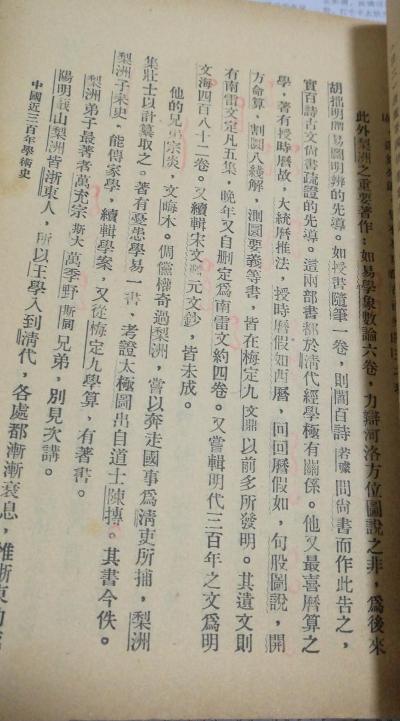 此外梨洲之重要著作如易學象數論六卷，力辯河洛方位圖說之非，爲後來
胡朏明渭易圖明辨的先導。如授書隨筆一卷，則閻百詩若璩問尙書而作此告之，
實百詩古文尙書疏證的先導。這兩部書都於清代經學極有關係。他又最喜曆算之
學，著有授時曆故，大統曆推法，授時曆假如西曆，回回曆假如，句股圖說，開
方命算，割圜八綫解，測圜要義等書，皆在梅定九文鼎以前多所發明。其遺文則
有南雷文定凡五集，晚年又自删定爲南雷文約四卷。又嘗輯明代三百年之文爲明
文海四百八十二卷。又續輯宋文鑑元文鈔，皆未成。
他的兄弟宗炎，文晦木。倜儻權奇過梨洲，嘗以奔走國事爲清吏所捕，梨洲
集壯士以計纂取之。著有憂患學易一書，考證太極圖出自道士陳摶。其書今佚。
梨洲子耒史，能傳家學，續輯學案，又從梅定九學算，有著書。
梨洲弟子最著者萬充宗斯大萬季野斯同兄弟，別見次講。
陽明蕺山梨洲皆浙東人，所以王學入到清代，各處都漸漸衰息，惟浙東的
中國近三百年學術史